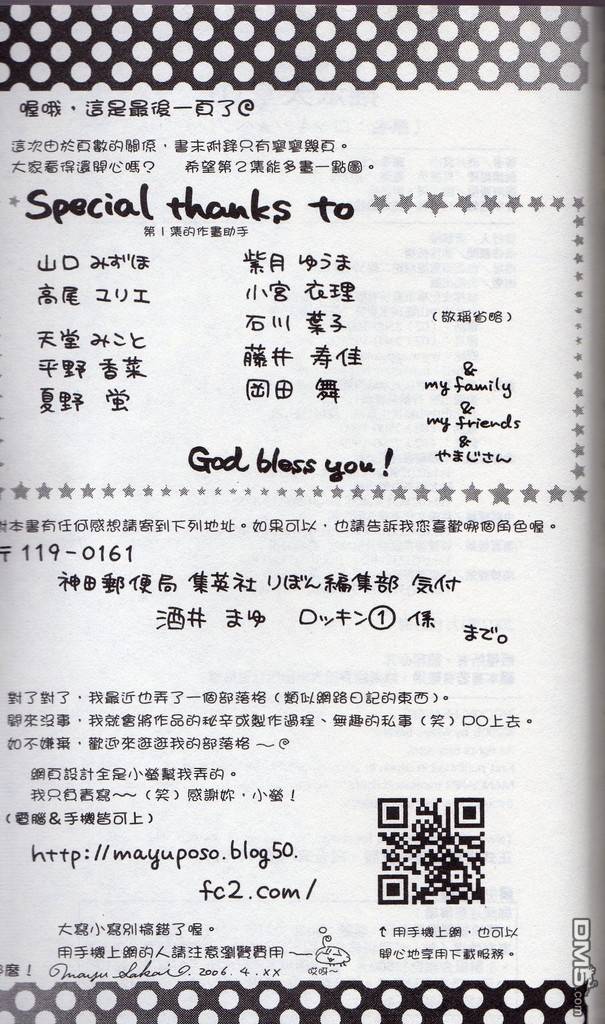 喔哦，這是最後一頁了@
這次由於頁數的關係，書末附錄只有寥寥幾頁。
大家看得還開心嗎？ 希望第2集能多畫一點圖。
Special thanks to
第1集的作畫助手
山口 みずほ
高尾 ユリエ
天堂 みこと
平野 香菜
夏野 蛍
紫月 ゆうま
小宮 衣理
石川 葉子
藤井 寿佳
岡田 舞
（敬稱省略）
&
my family
&
my friends
&
やまじさん
God bless you!
對本書有任何感想請寄到下列地址。如果可以，也請告訴我您喜歡哪個角色喔。
〒119-0161
神田郵便局 集英社 りぼん編集部 気付
酒井 まゆ ロッキン① 係
まで。
對了對了，我最近也弄了一個部落格（類似網路日記的東西）。
閒來沒事，我就會將作品的秘辛或製作過程、無趣的私事（笑）PO上去。
如不嫌棄，歡迎來逛逛我的部落格～@
網頁設計全是小螢幫我弄的。
我只負責寫～～（笑）感謝妳，小螢！
（電腦&手機皆可上）
http://mayuposo.blog50.
fc2.com/
大寫小寫別搞錯了喔。
用手機上網的人請注意瀏覽費用
哎呀～
↑用手機上網，也可以
開心地享用下載服務。
麼！ Mayu Sakai. 2006.4.XX
DM5.com